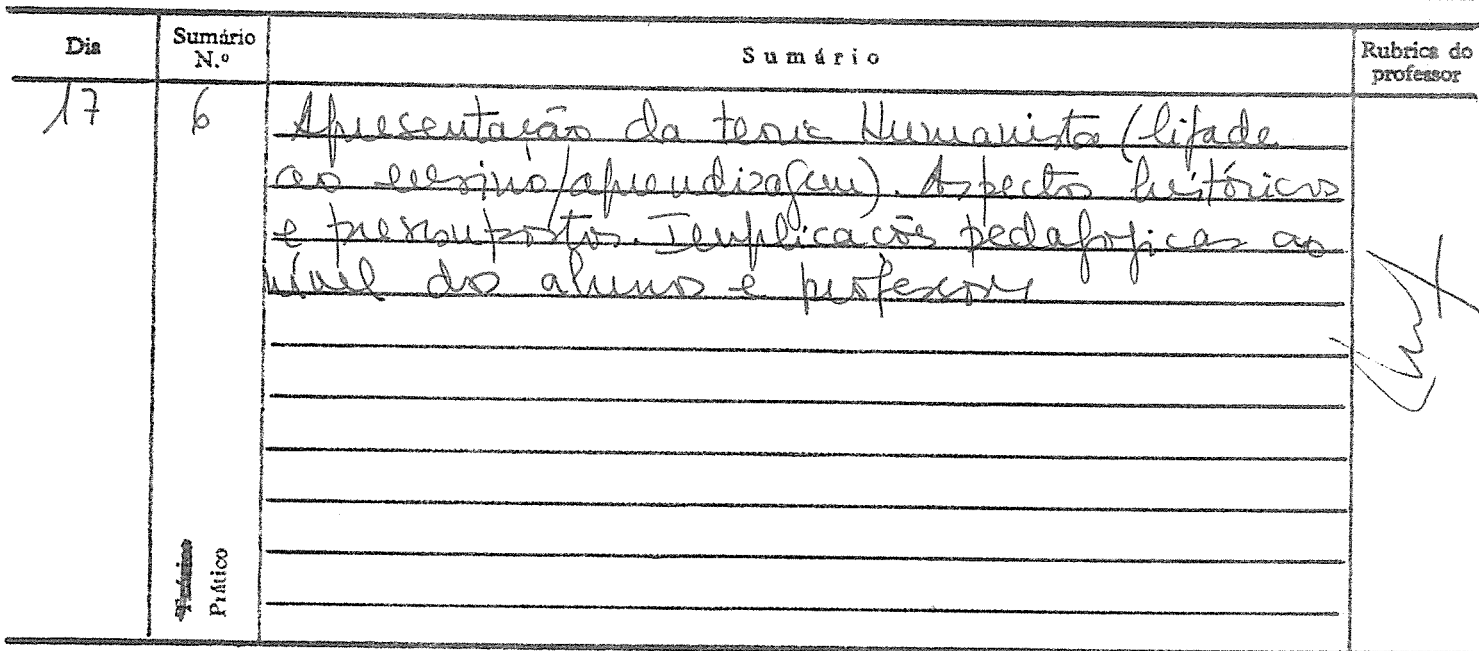 Dia Sumário N.º Sumário Rubrica do professor
17 6 Apresentação da teoria Humanista (ligada
ao ensino/aprendizagem). Aspectos históricos
e pressupostos. Implicações pedagógicas ao
nível dos alunos e professores
Teórico
Prático